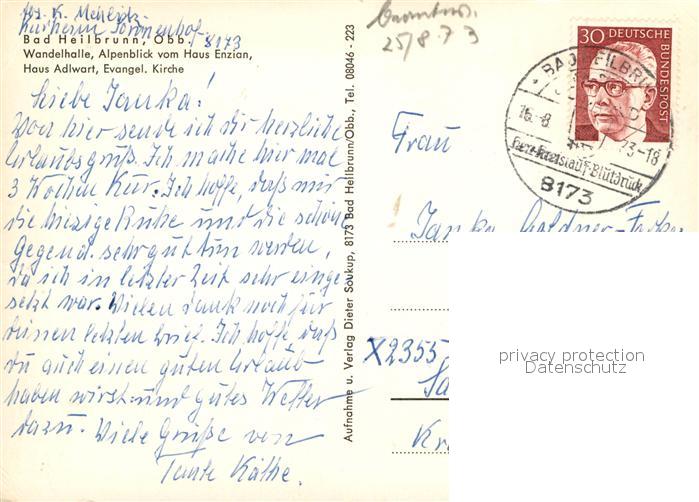 Abs. K. Mehlitz
Kurheim Sonnenhof, 8173
Bad Heilbrunn, Obb.
Wandelhalle, Alpenblick vom Haus Enzian,
Haus Adlwart, Evangel. Kirche
Liebe Janka!
Von hier sende ich dir herzliche
Urlaubsgrüße. Ich mache hier mal
3 Wochen Kur. Ich hoffe, daß mir
die hiesige Ruhe und die schöne
Gegend sehr gut tun werden,
da ich in letzter Zeit sehr einge-
setzt war. Vielen Dank noch für
deinen letzten Brief. Ich hoffe, daß
du auch einen guten Urlaub
haben wirst und gutes Wetter
dazu. Viele Grüße von
Tante Käthe.
Aufnahme u. Verlag Dieter Soukup, 8173 Bad Heilbrunn/Obb., Tel. 08046 - 223
25/8 73
30 DEUTSCHE BUNDESPOST
BAD HEILBRUNN
16.-8.73-18
Herz-Kreislauf-Blutdruck
8173
Frau
Janka
X2355
privacy protection
Datenschutz